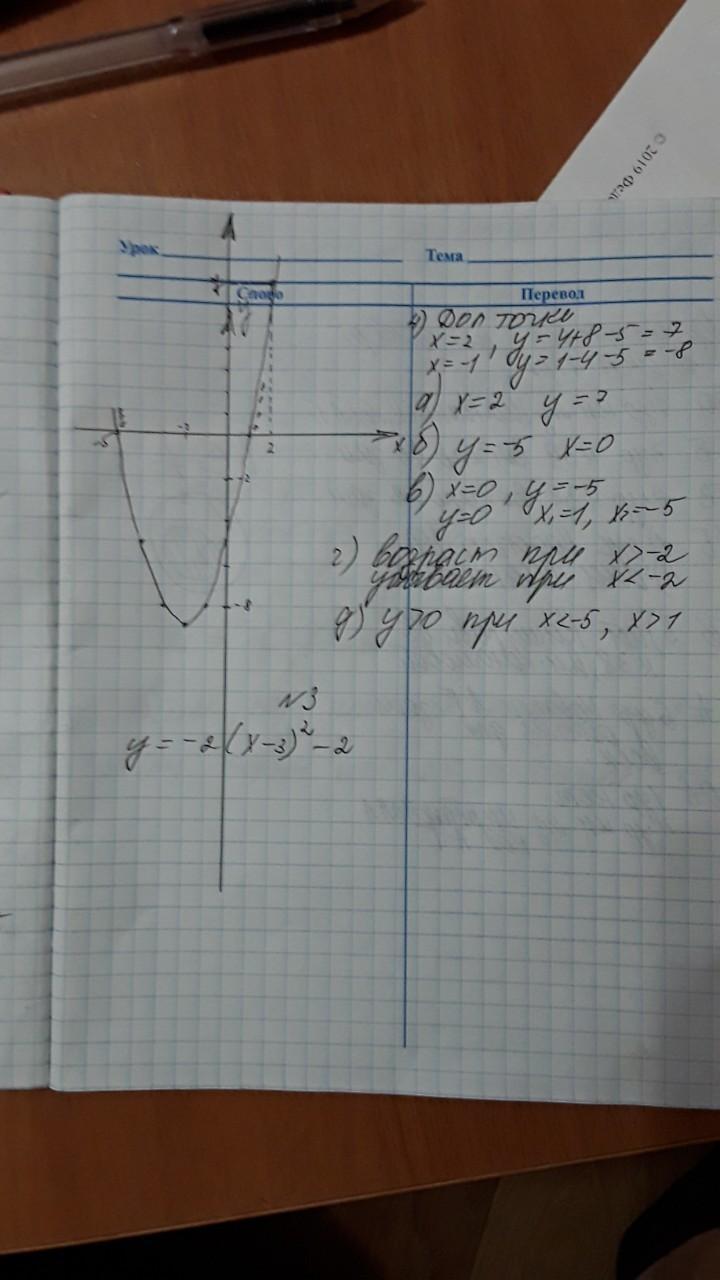 © 2019 Фед
Урок
Тема
Слово
Перевод
4) Доп точки
x=2, y=4+8-5=7
x=-1, y=1-4-5=-8
а) x=2 y=7
x
-5
-3
2
б) y=-5 x=0
-2
в) x=0, y=-5
y=0 x₁=1, x₂=-5
г) возраст при x>-2
убывает при x<-2
-8
д) y>0 при x<-5, x>1
№3
y=-2(x-3)²-2